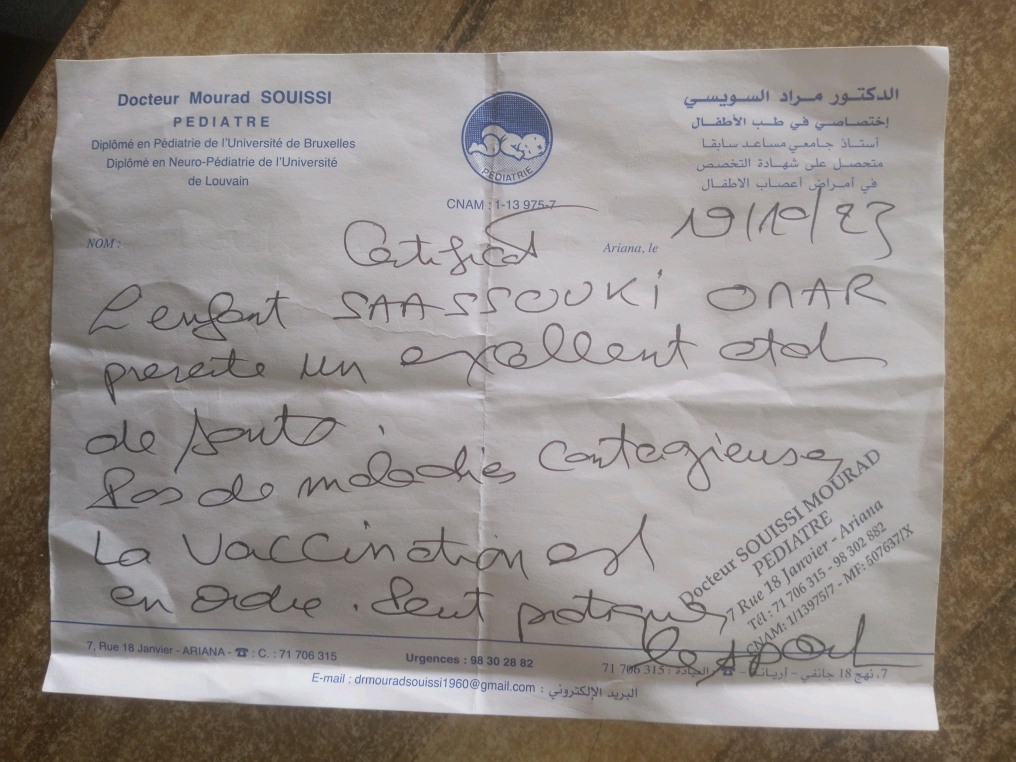 Docteur Mourad SOUISSI
PEDIATRE
Diplômé en Pédiatrie de l'Université de Bruxelles
Diplômé en Neuro-Pédiatrie de l'Université
de Louvain
PEDIATRIE
CNAM : 1-13 975-7
الدكتور مراد السويسي
إختصاصي في طب الأطفال
أستاذ جامعي مساعد سابقا
متحصل على شهادة التخصص
في أمراض أعصاب الاطفال
NOM :
Certificat
Ariana, le 19/10/23
L'enfant SAASSOUKI OMAR
presente un excellent etat
de sante.
Pas de maladies contagieuses
La vaccination est
en ordre. Peut pratiquer
le sport
Docteur SOUISSI MOURAD
PEDIATRE
7 Rue 18 Janvier - Ariana
Tél : 71 706 315 - 98 302 882
CNAM: 1/13975/7 - MF: 507637/X
7, Rue 18 Janvier - ARIANA - ☎ : C. : 71 706 315
Urgences : 98 30 28 82
7، نهج 18 جانفي - أريانة - ☎ العيادة : 315 706 71
E-mail : drmouradsouissi1960@gmail.com : البريد الإلكتروني